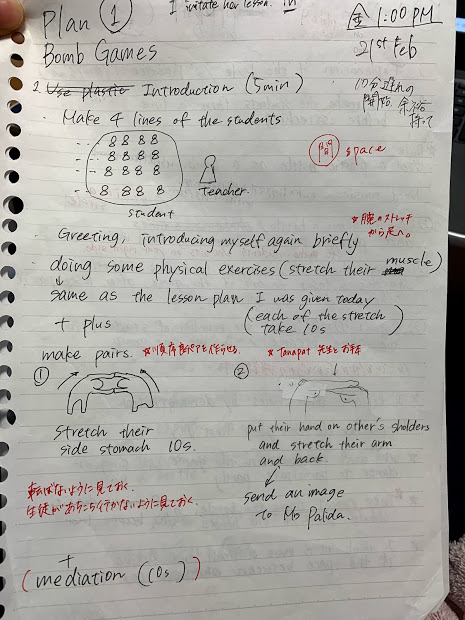 Plan ①
I imitate her lesson. in
金 1:00 PM
Bomb Games
21st Feb
2 Use plastic Introduction (5min)
10分遅め
開始 余裕
持って
Make 4 lines of the students
8 8 8 8
8 8 8 8
8 8 8 8
8 8 8 8
student
teacher.
space
※腕のストレッチ
から足へ。
Greeting, introducing myself again briefly
doing some physical exercises (stretch their muscle)
same as the lesson plan I was given today
+ plus
(each of the stretch
take 10s)
make pairs.
※Tanapat 先生とお手本
①
②
Stretch their
side stomach 10s.
put their hand on other's sholders
and stretch their arm
and back.
send an image
to Ms Palida.
転ばないように見ておく。
生徒があちこち行かないように見ておく。
+
(mediation (10s))